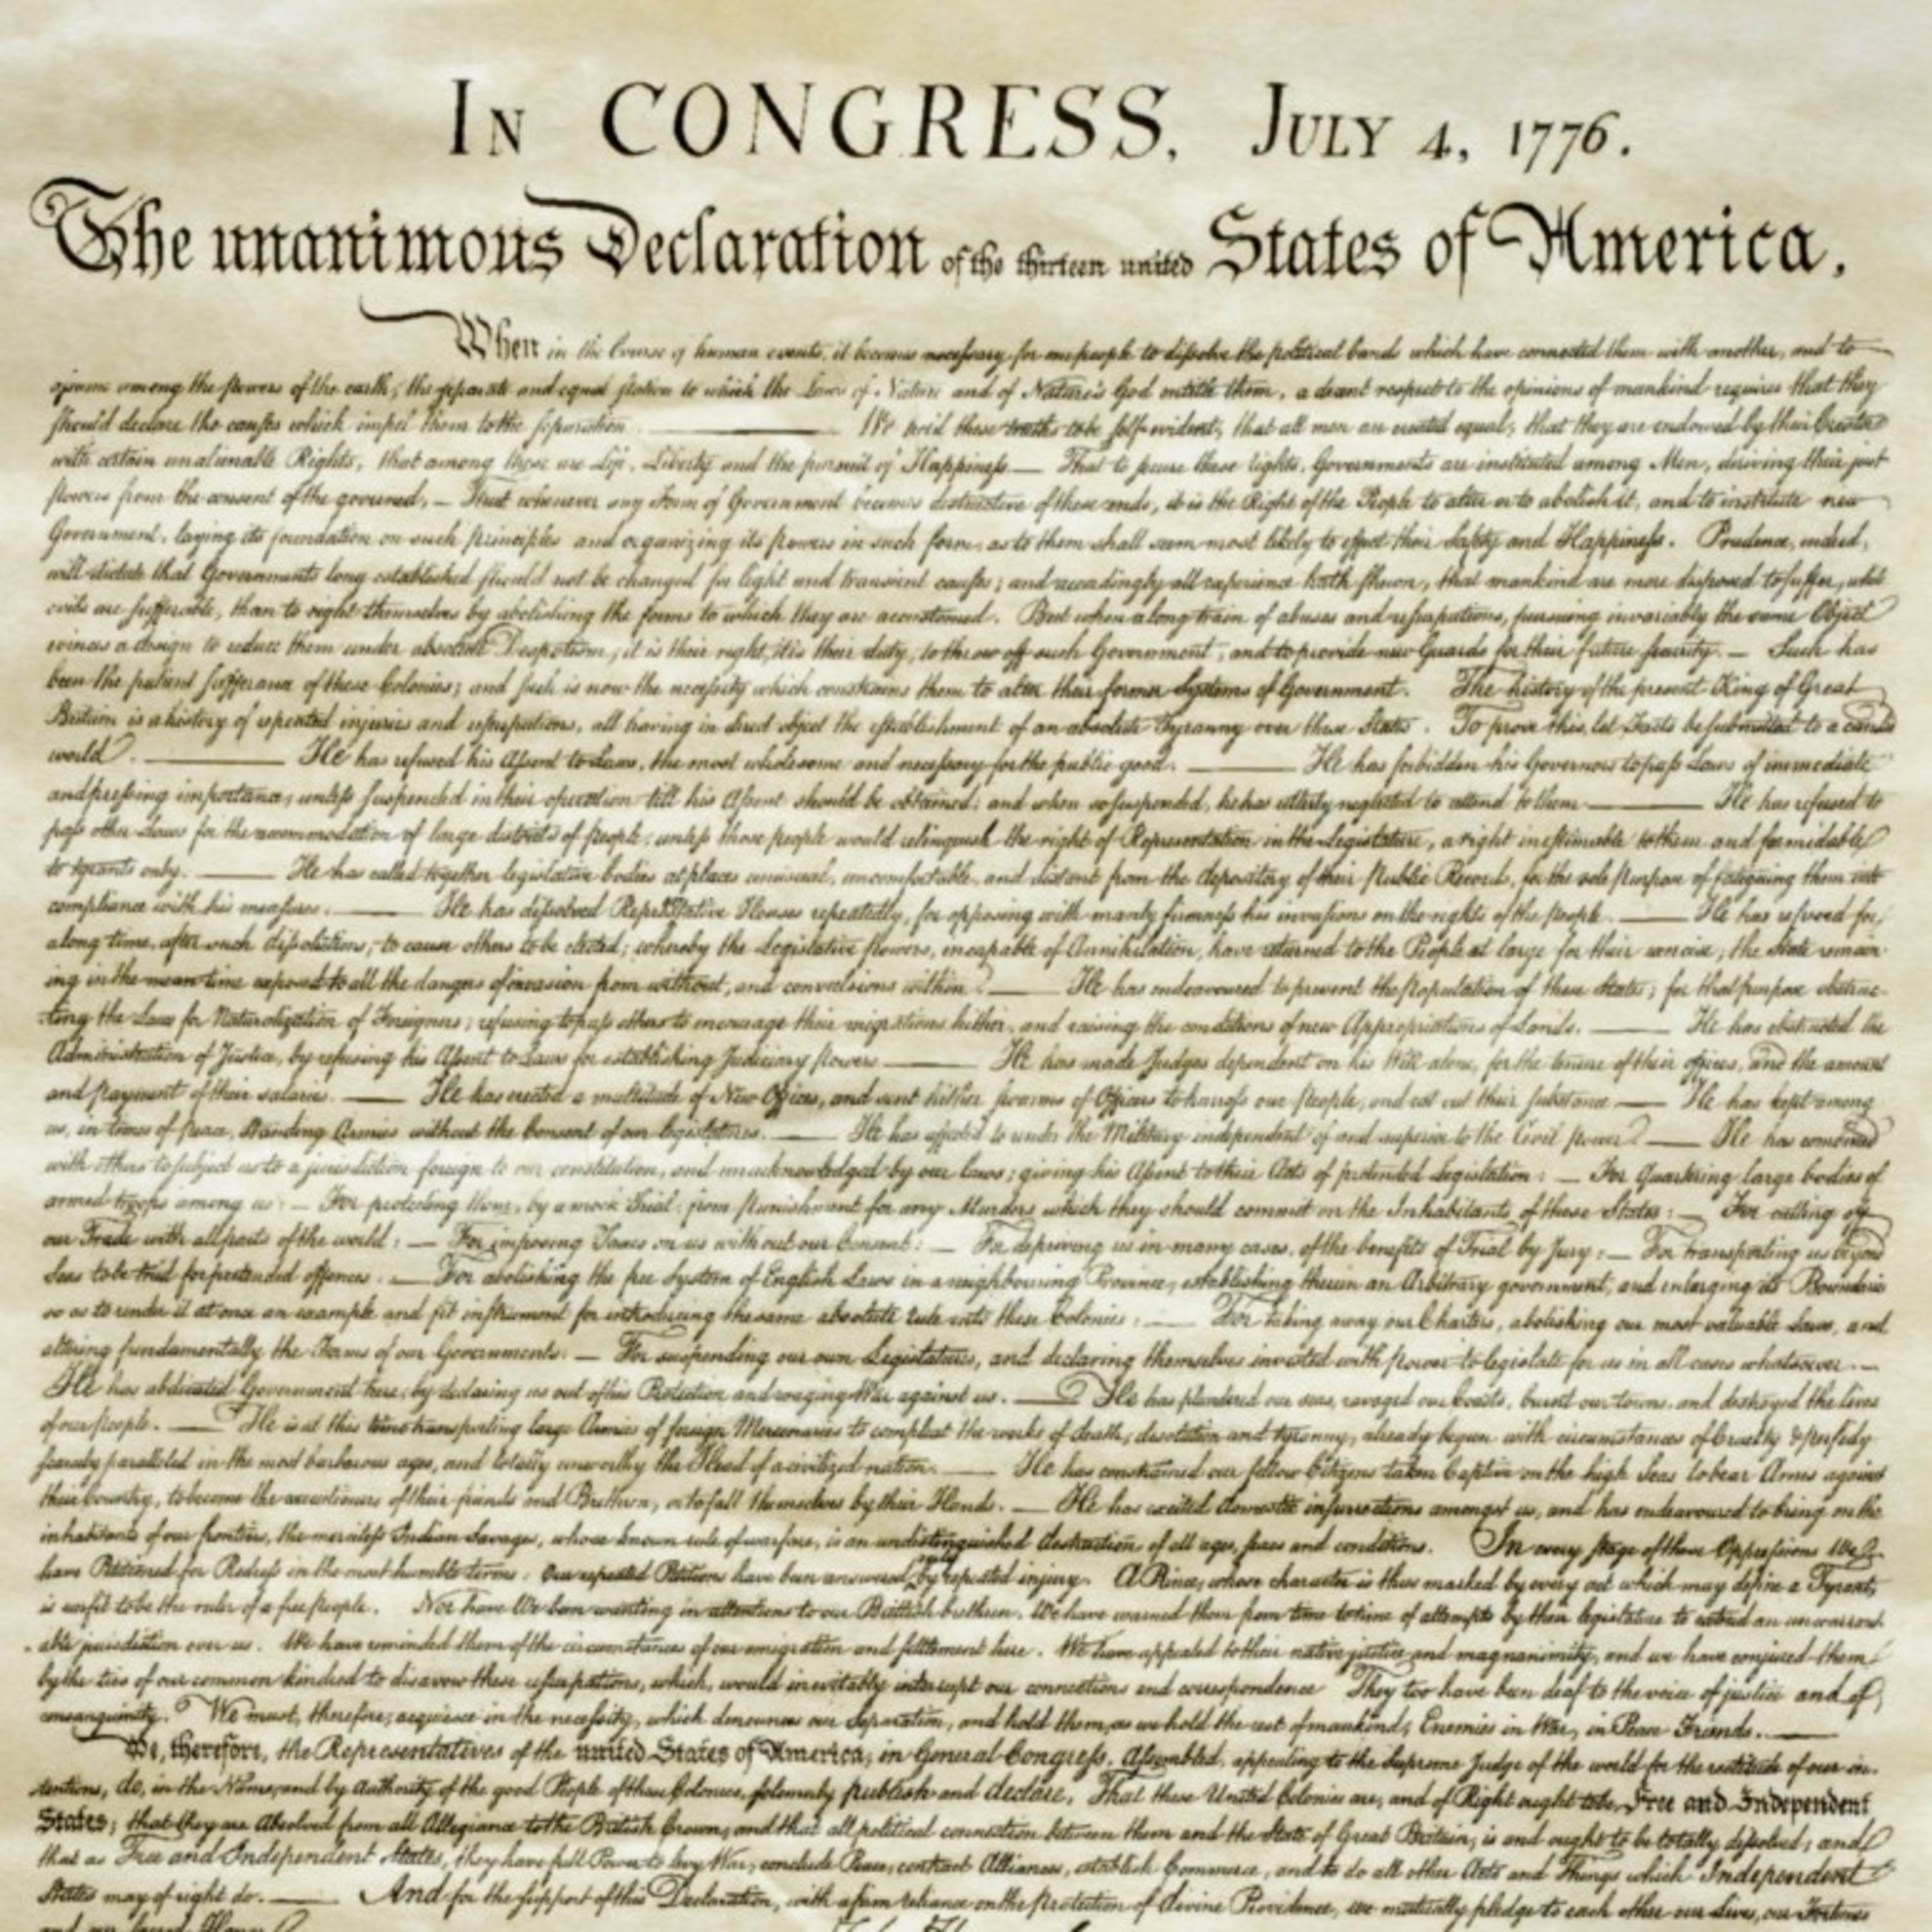 IN CONGRESS, JULY 4, 1776.
The unanimous Declaration of the thirteen united States of America,
When in the Course of human events, it becomes necessary for one people to dissolve the political bands which have connected them with another, and to
assume among the powers of the earth, the separate and equal station to which the Laws of Nature and of Nature's God entitle them, a decent respect to the opinions of mankind requires that they
should declare the causes which impel them to the separation. ——— We hold these truths to be self-evident, that all men are created equal, that they are endowed by their Creator
with certain unalienable Rights, that among these are Life, Liberty and the pursuit of Happiness.— That to secure these rights, Governments are instituted among Men, deriving their just
powers from the consent of the governed, — That whenever any Form of Government becomes destructive of these ends, it is the Right of the People to alter or to abolish it, and to institute new
Government, laying its foundation on such principles and organizing its powers in such form, as to them shall seem most likely to effect their Safety and Happiness. Prudence, indeed,
will dictate that Governments long established should not be changed for light and transient causes; and accordingly all experience hath shewn, that mankind are more disposed to suffer, while
evils are sufferable, than to right themselves by abolishing the forms to which they are accustomed. But when a long train of abuses and usurpations, pursuing invariably the same Object
evinces a design to reduce them under absolute Despotism, it is their right, it is their duty, to throw off such Government, and to provide new Guards for their future security. — Such has
been the patient sufferance of these Colonies; and such is now the necessity which constrains them to alter their former Systems of Government. The history of the present King of Great
Britain is a history of repeated injuries and usurpations, all having in direct object the establishment of an absolute Tyranny over these States. To prove this, let Facts be submitted to a candid
world. ——— He has refused his Assent to Laws, the most wholesome and necessary for the public good. ——— He has forbidden his Governors to pass Laws of immediate
and pressing importance, unless suspended in their operation till his Assent should be obtained; and when so suspended, he has utterly neglected to attend to them. ——— He has refused to
pass other Laws for the accommodation of large districts of people, unless those people would relinquish the right of Representation in the Legislature, a right inestimable to them and formidable
to tyrants only. ——— He has called together legislative bodies at places unusual, uncomfortable, and distant from the depository of their Public Records, for the sole purpose of fatiguing them into
compliance with his measures. ——— He has dissolved Representative Houses repeatedly, for opposing with manly firmness his invasions on the rights of the people. ——— He has refused for
a long time, after such dissolutions, to cause others to be elected; whereby the Legislative powers, incapable of Annihilation, have returned to the People at large for their exercise; the State remain-
ing in the mean time exposed to all the dangers of invasion from without, and convulsions within. ——— He has endeavoured to prevent the population of these States; for that purpose obstruc-
ting the Laws for Naturalization of Foreigners; refusing to pass others to encourage their migrations hither, and raising the conditions of new Appropriations of Lands. ——— He has obstructed the
Administration of Justice, by refusing his Assent to Laws for establishing Judiciary powers. ——— He has made Judges dependent on his Will alone, for the tenure of their offices, and the amount
and payment of their salaries. ——— He has erected a multitude of New Offices, and sent hither swarms of Officers to harrass our people, and eat out their substance. ——— He has kept among
us, in times of peace, Standing Armies without the Consent of our legislatures. ——— He has affected to render the Military independent of and superior to the Civil power. ——— He has combined
with others to subject us to a jurisdiction foreign to our constitution, and unacknowledged by our laws; giving his Assent to their Acts of pretended Legislation: — For Quartering large bodies of
armed troops among us: — For protecting them, by a mock Trial, from punishment for any Murders which they should commit on the Inhabitants of these States: — For cutting off
our Trade with all parts of the world: — For imposing Taxes on us without our Consent: — For depriving us in many cases, of the benefits of Trial by Jury: — For transporting us beyond
Seas to be tried for pretended offences. — For abolishing the free System of English Laws in a neighbouring Province, establishing therein an Arbitrary government, and enlarging its Boundaries
so as to render it at once an example and fit instrument for introducing the same absolute rule into these Colonies: — For taking away our Charters, abolishing our most valuable Laws, and
altering fundamentally the Forms of our Governments. — For suspending our own Legislatures, and declaring themselves invested with power to legislate for us in all cases whatsoever. —
He has abdicated Government here, by declaring us out of his Protection and waging War against us. — He has plundered our seas, ravaged our Coasts, burnt our towns, and destroyed the lives
of our people. — He is at this time transporting large Armies of foreign Mercenaries to compleat the works of death, desolation and tyranny, already begun with circumstances of Cruelty & perfidy
scarcely paralleled in the most barbarous ages, and totally unworthy the Head of a civilized nation. ——— He has constrained our fellow Citizens taken Captive on the high Seas to bear Arms against
their Country, to become the executioners of their friends and Brethren, or to fall themselves by their Hands. — He has excited domestic insurrections amongst us, and has endeavoured to bring on the
inhabitants of our frontiers, the merciless Indian Savages, whose known rule of warfare, is an undistinguished destruction of all ages, sexes and conditions. In every stage of these Oppressions We
have Petitioned for Redress in the most humble terms: Our repeated Petitions have been answered only by repeated injury. A Prince, whose character is thus marked by every act which may define a Tyrant,
is unfit to be the ruler of a free people. Nor have We been wanting in attentions to our Brittish brethren. We have warned them from time to time of attempts by their legislature to extend an unwarrant-
able jurisdiction over us. We have reminded them of the circumstances of our emigration and settlement here. We have appealed to their native justice and magnanimity, and we have conjured them
by the ties of our common kindred to disavow these usurpations, which, would inevitably interrupt our connections and correspondence They too have been deaf to the voice of justice and of
consanguinity. We must, therefore, acquiesce in the necessity, which denounces our Separation, and hold them, as we hold the rest of mankind, Enemies in War, in Peace Friends. ———
We, therefore, the Representatives of the united States of America, in General Congress, Assembled, appealing to the Supreme Judge of the world for the rectitude of our in-
tentions, do, in the Name, and by Authority of the good People of these Colonies, solemnly publish and declare, That these United Colonies are, and of Right ought to be Free and Independent
States; that they are Absolved from all Allegiance to the British Crown, and that all political connection between them and the State of Great Britain, is and ought to be totally dissolved; and
that as Free and Independent States, they have full Power to levy War, conclude Peace, contract Alliances, establish Commerce, and to do all other Acts and Things which Independent
States may of right do. ——— And for the support of this Declaration, with a firm reliance on the protection of divine Providence, we mutually pledge to each other our Lives, our Fortunes
and our sacred Honor.